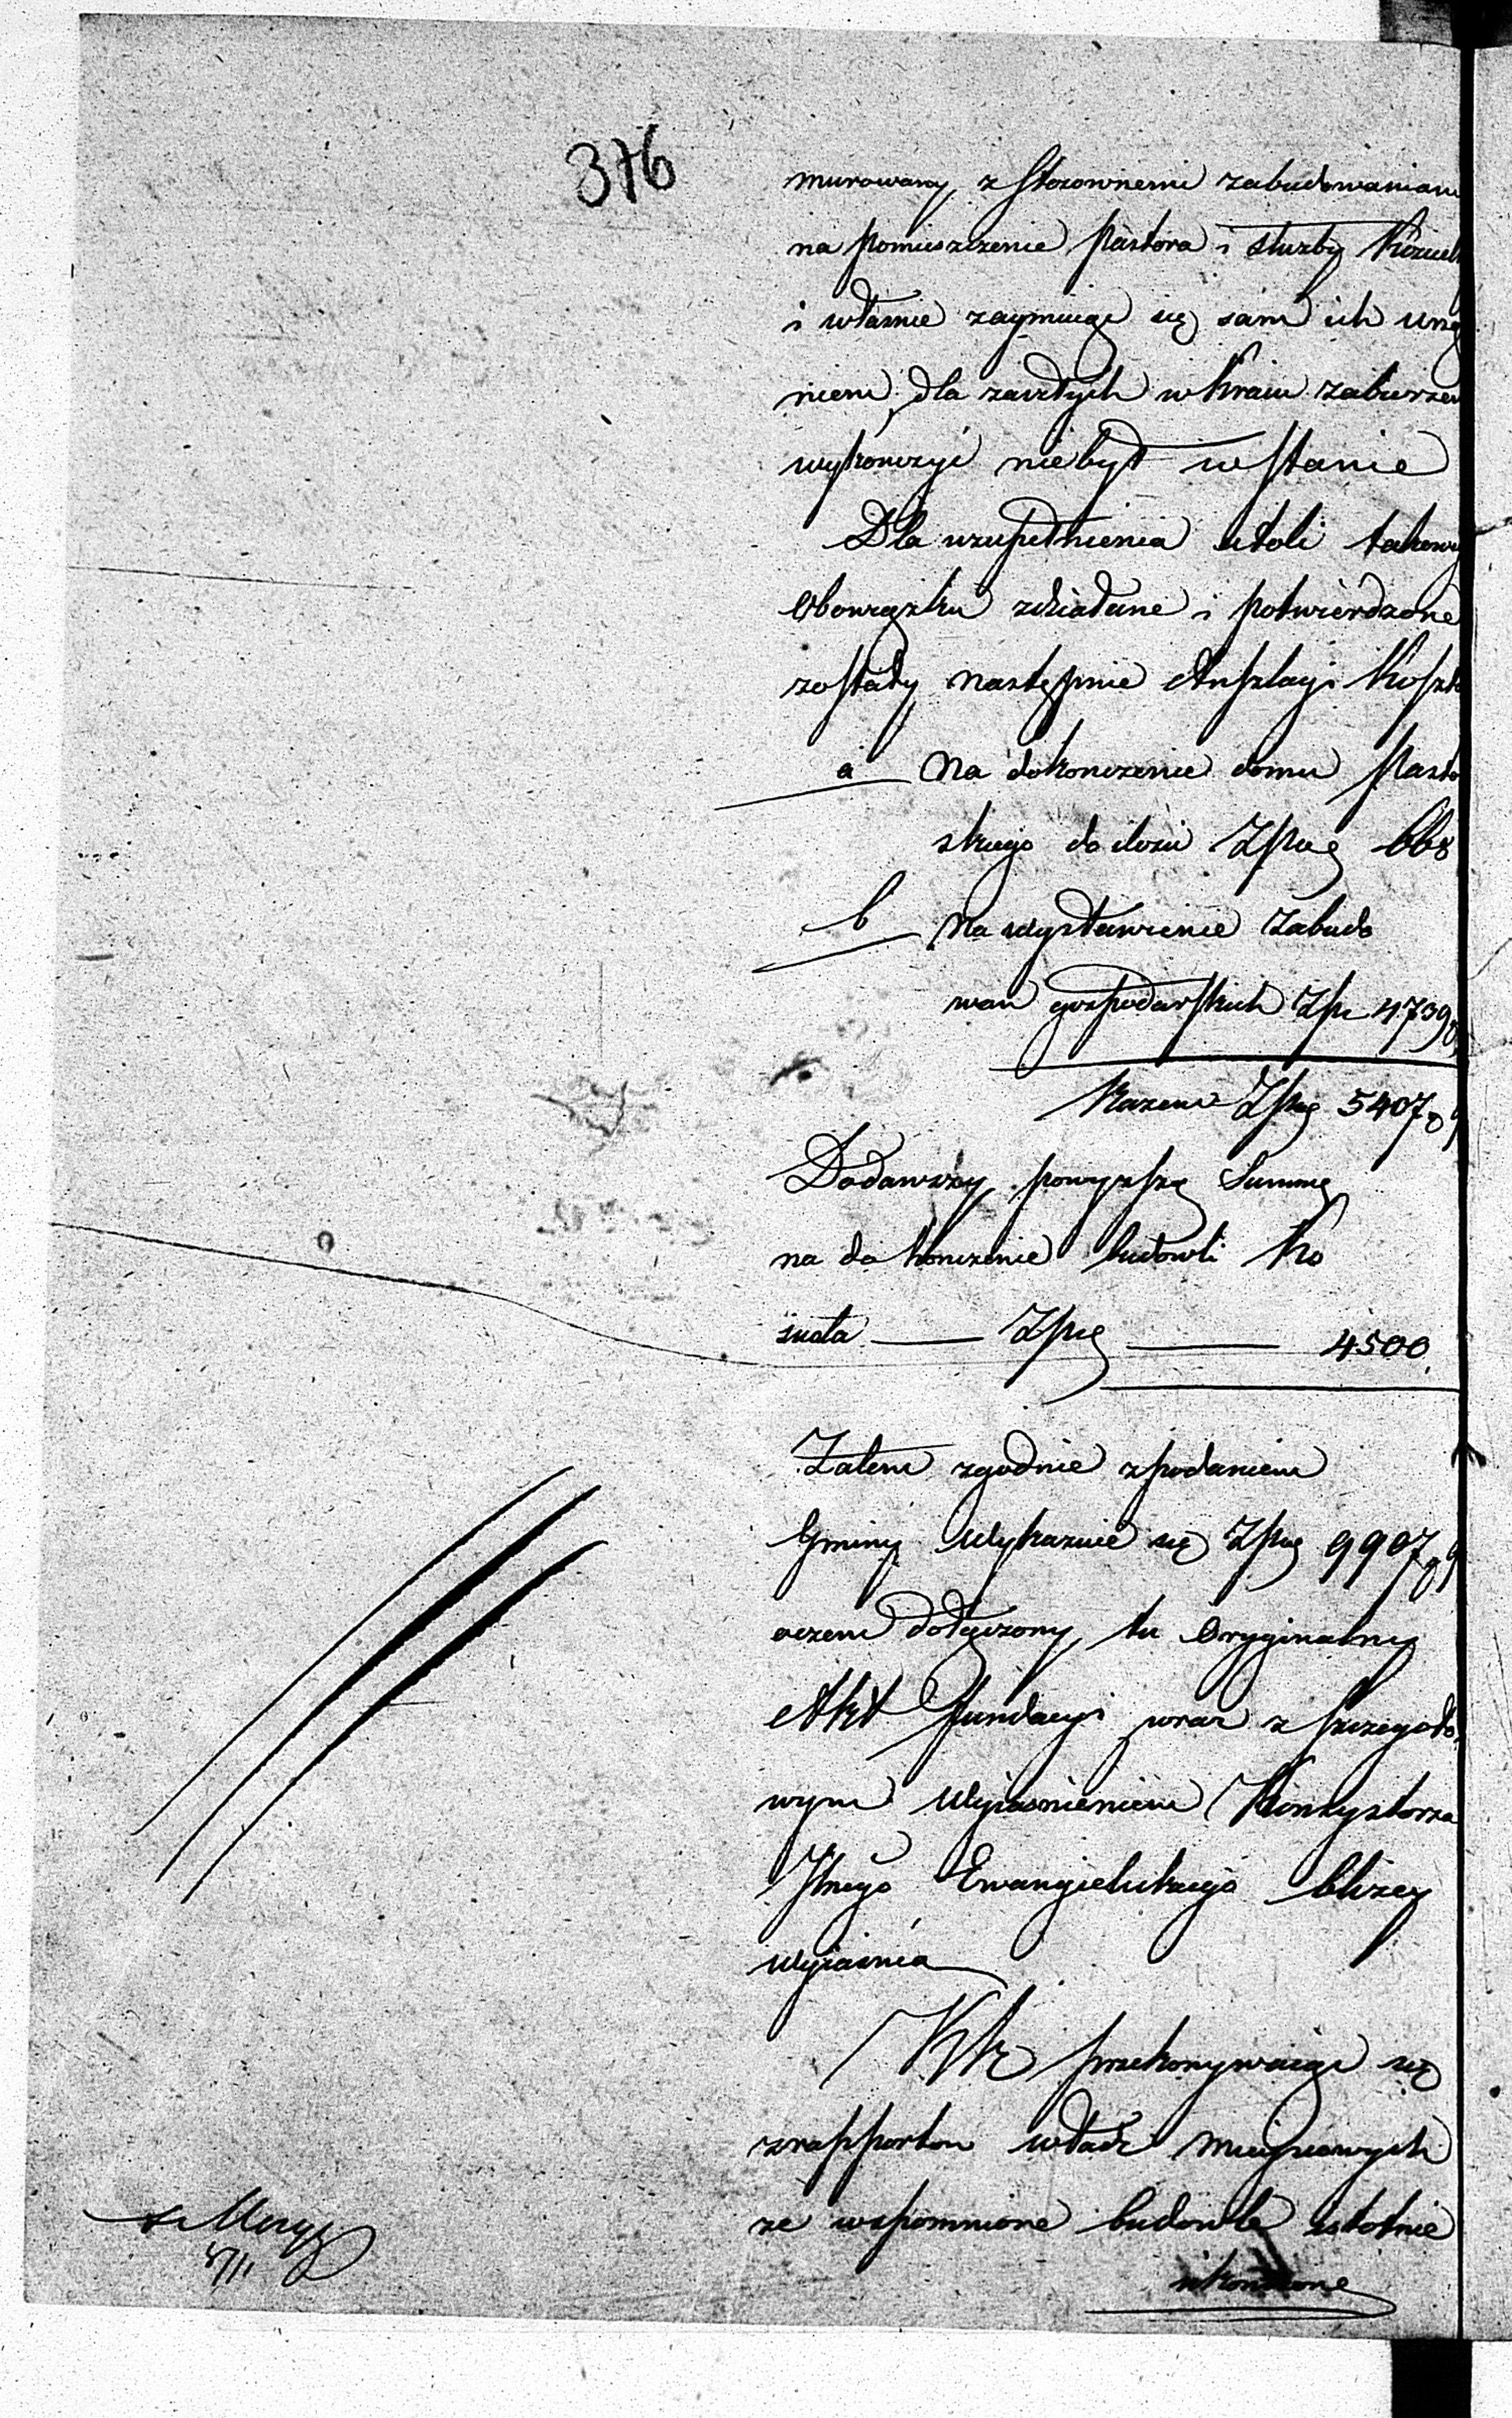 376
murowany, z stosownemi zabudowaniam
na pomieszczenie Pastora i służby Kościel
i właśnie zaymuiąc się sam ich urzą
niem, dla zaszłych w Kraiu zaburzeń
wykończyć niebył w stanie
Dla uzupełnienia atoli takowy
Obowiązku zdziałane i potwierdzone
zostały następnie Anszlagi Koszt
a Na dokończenie domu Pasto
skiego do ilości Złpng 668
b Na wystawienie Zabudo
wań gospodarskich Złp 4739
Razem Złpng 5407
Dodawszy powyższą Summę
na dokończenie budowli Ko
ścioła — Złpng — 4500
Zatem zgodnie z podaniem
Gminy Wykazuie się Złpng 9907
oczem dołączony tu Oryginalny
Akt fundacyi wraz z szczegóło
wym Wyiaśnieniem Konsystorza
Ewangielickiego bliżey
wyiaśnia
przekonywaiąc się
z rapportow władz mieyscowych
że wspomnione budowle istotnie
ukończone